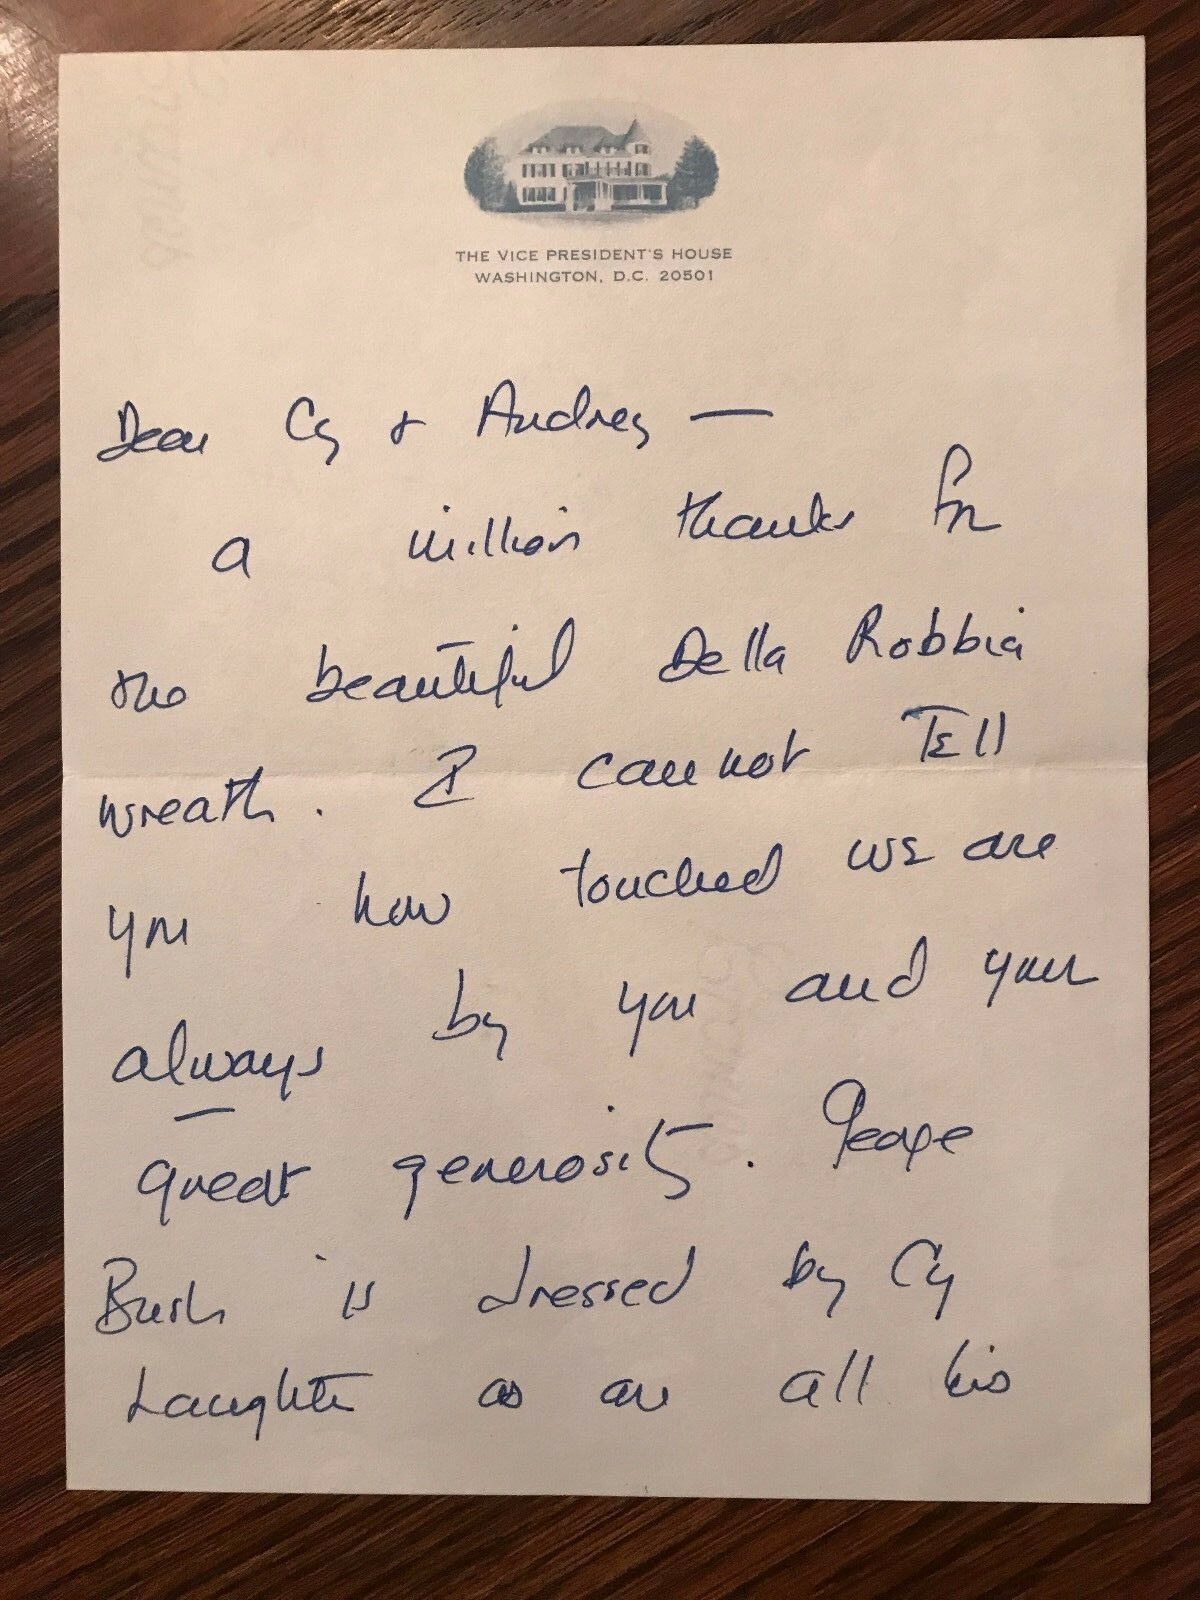 THE VICE PRESIDENT'S HOUSE
WASHINGTON, D.C. 20501
Dear Cy & Audrey —
a million thanks for
the beautiful Della Robbia
wreath. I cannot Tell
you how touched we are
always by you and your
great generosity. George
Bush is dressed by Cy
Laughter as are all his